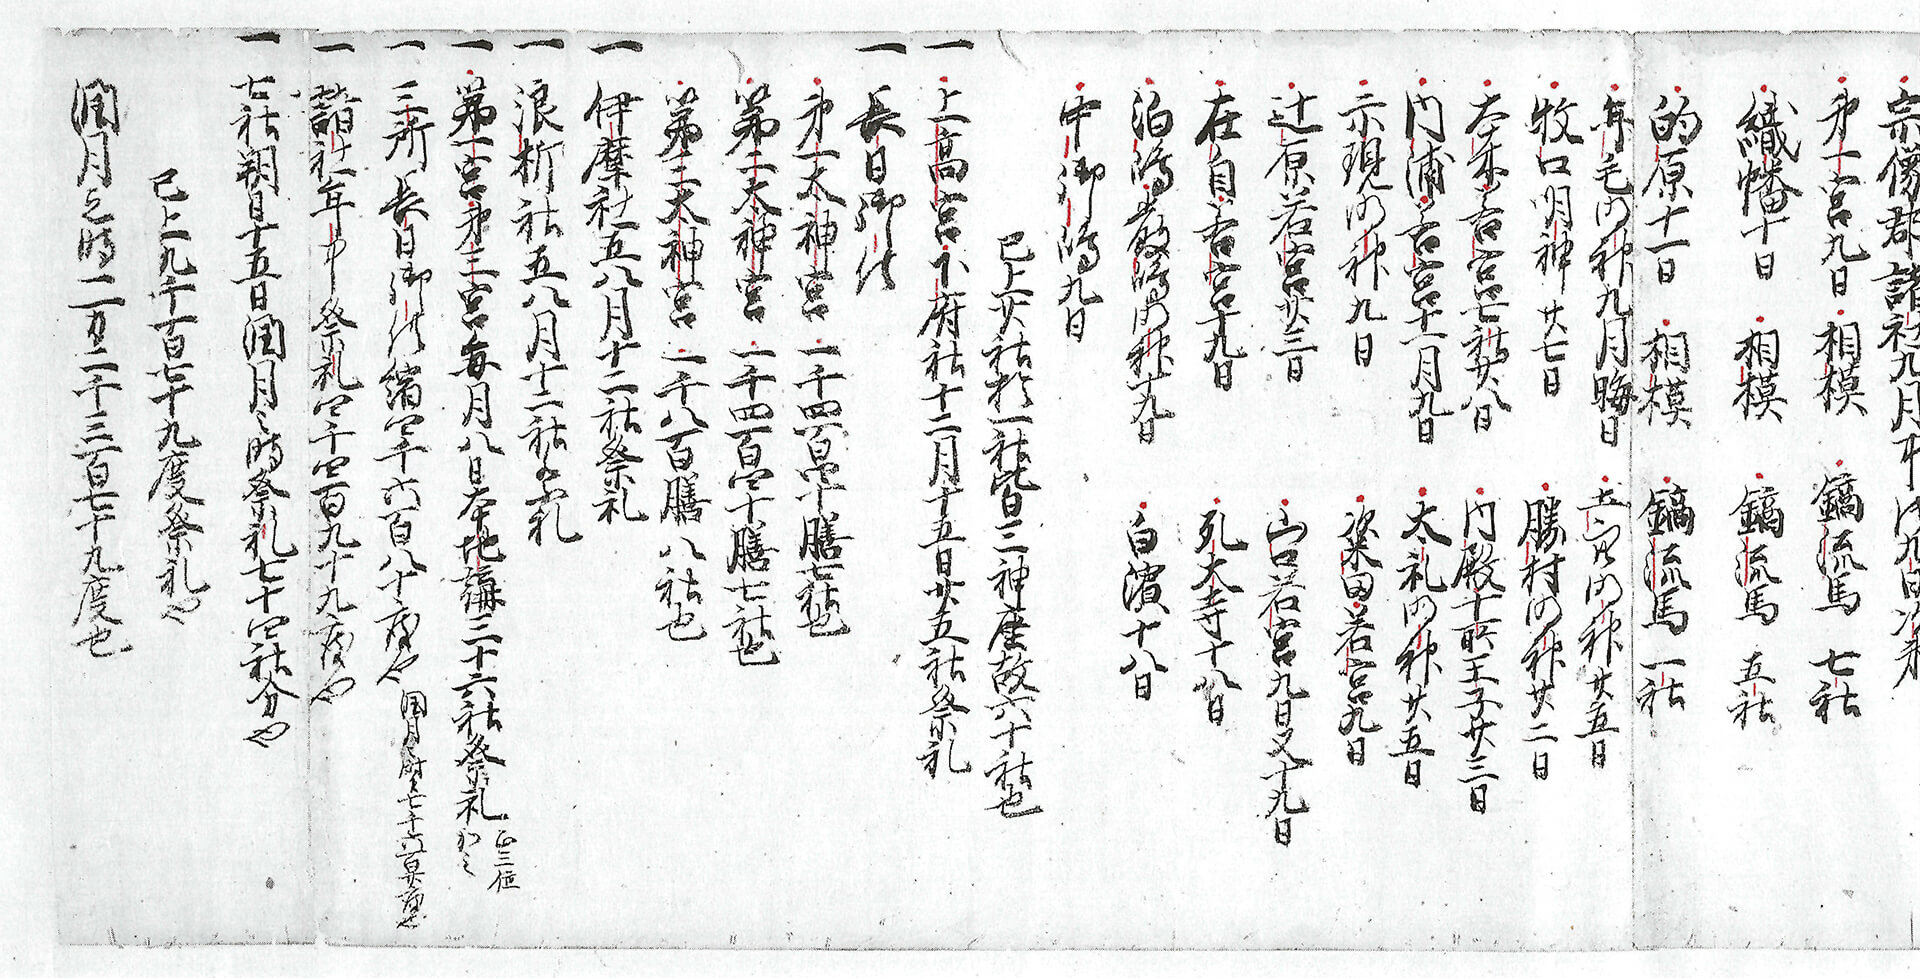 宗像郡諸社九月中
第一宮九日 相模 鏑流馬 七社
織幡十日 相模 鏑流馬 五社
的原十一日 相模 鏑流馬 一社
年毛明神九月晦日 明神廿五日
牧口明神廿七日 勝村明神廿二日
若宮七社廿八日 内殿十所王子廿三日
内浦若宮十一月九日 大礼明神廿五日
示現明神九日 梁田若宮九日
辻原若宮廿三日 山口若宮九日又十九日
在自若宮十九日 孔大寺十八日
泊嶋厳嶋明神十九日 白濱十八日
中御嶋九日
已上廿社於一社皆三神座故六十社也
一 上高宮下府社十二月十五日廿五社祭礼
一 長日御供
第一大神宮 一千四百四十膳七社也
第二大神宮 一千四百四十膳七社也
第三大神宮 一千八百膳八社也
一 伊摩社五八月十二社祭礼
一 浪折社五八月十二社祭礼
一 第一宮第三宮毎月八日本地講三十六社祭礼 正三位
一 三所長日御供 四千六百八十度也
一 諸社年中祭礼四千四百九十九度也
一 七社朔日十五日閏月之時祭礼七十四社分也
已上九千一百七十九度祭礼也
閏月之時二万二千三百七十九度也